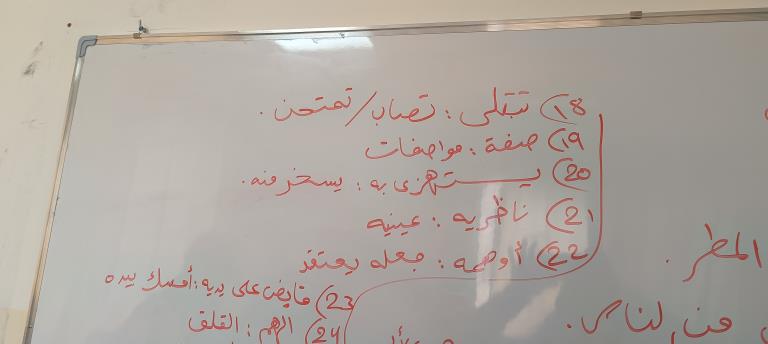 18) تبتلى : تصاب/تمتحن.
19) صفة : مواصفات
20) يستهزئ به : يسخر منه.
21) ناظريه : عينيه
22) أوهمه : جعله يعتقد
23) قابض على يديه : أمسك بيده
24) الهم : القلق
المطر.
من لناس.